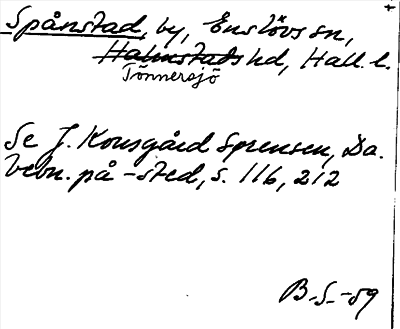 Spånstad, by, Enslövs sn,
Halmstads hd, Hall. l.
Tönnersjö
Se J. Kousgård Sørensen, Da.
bebn. på -sted, s. 116, 212
B.S.-59